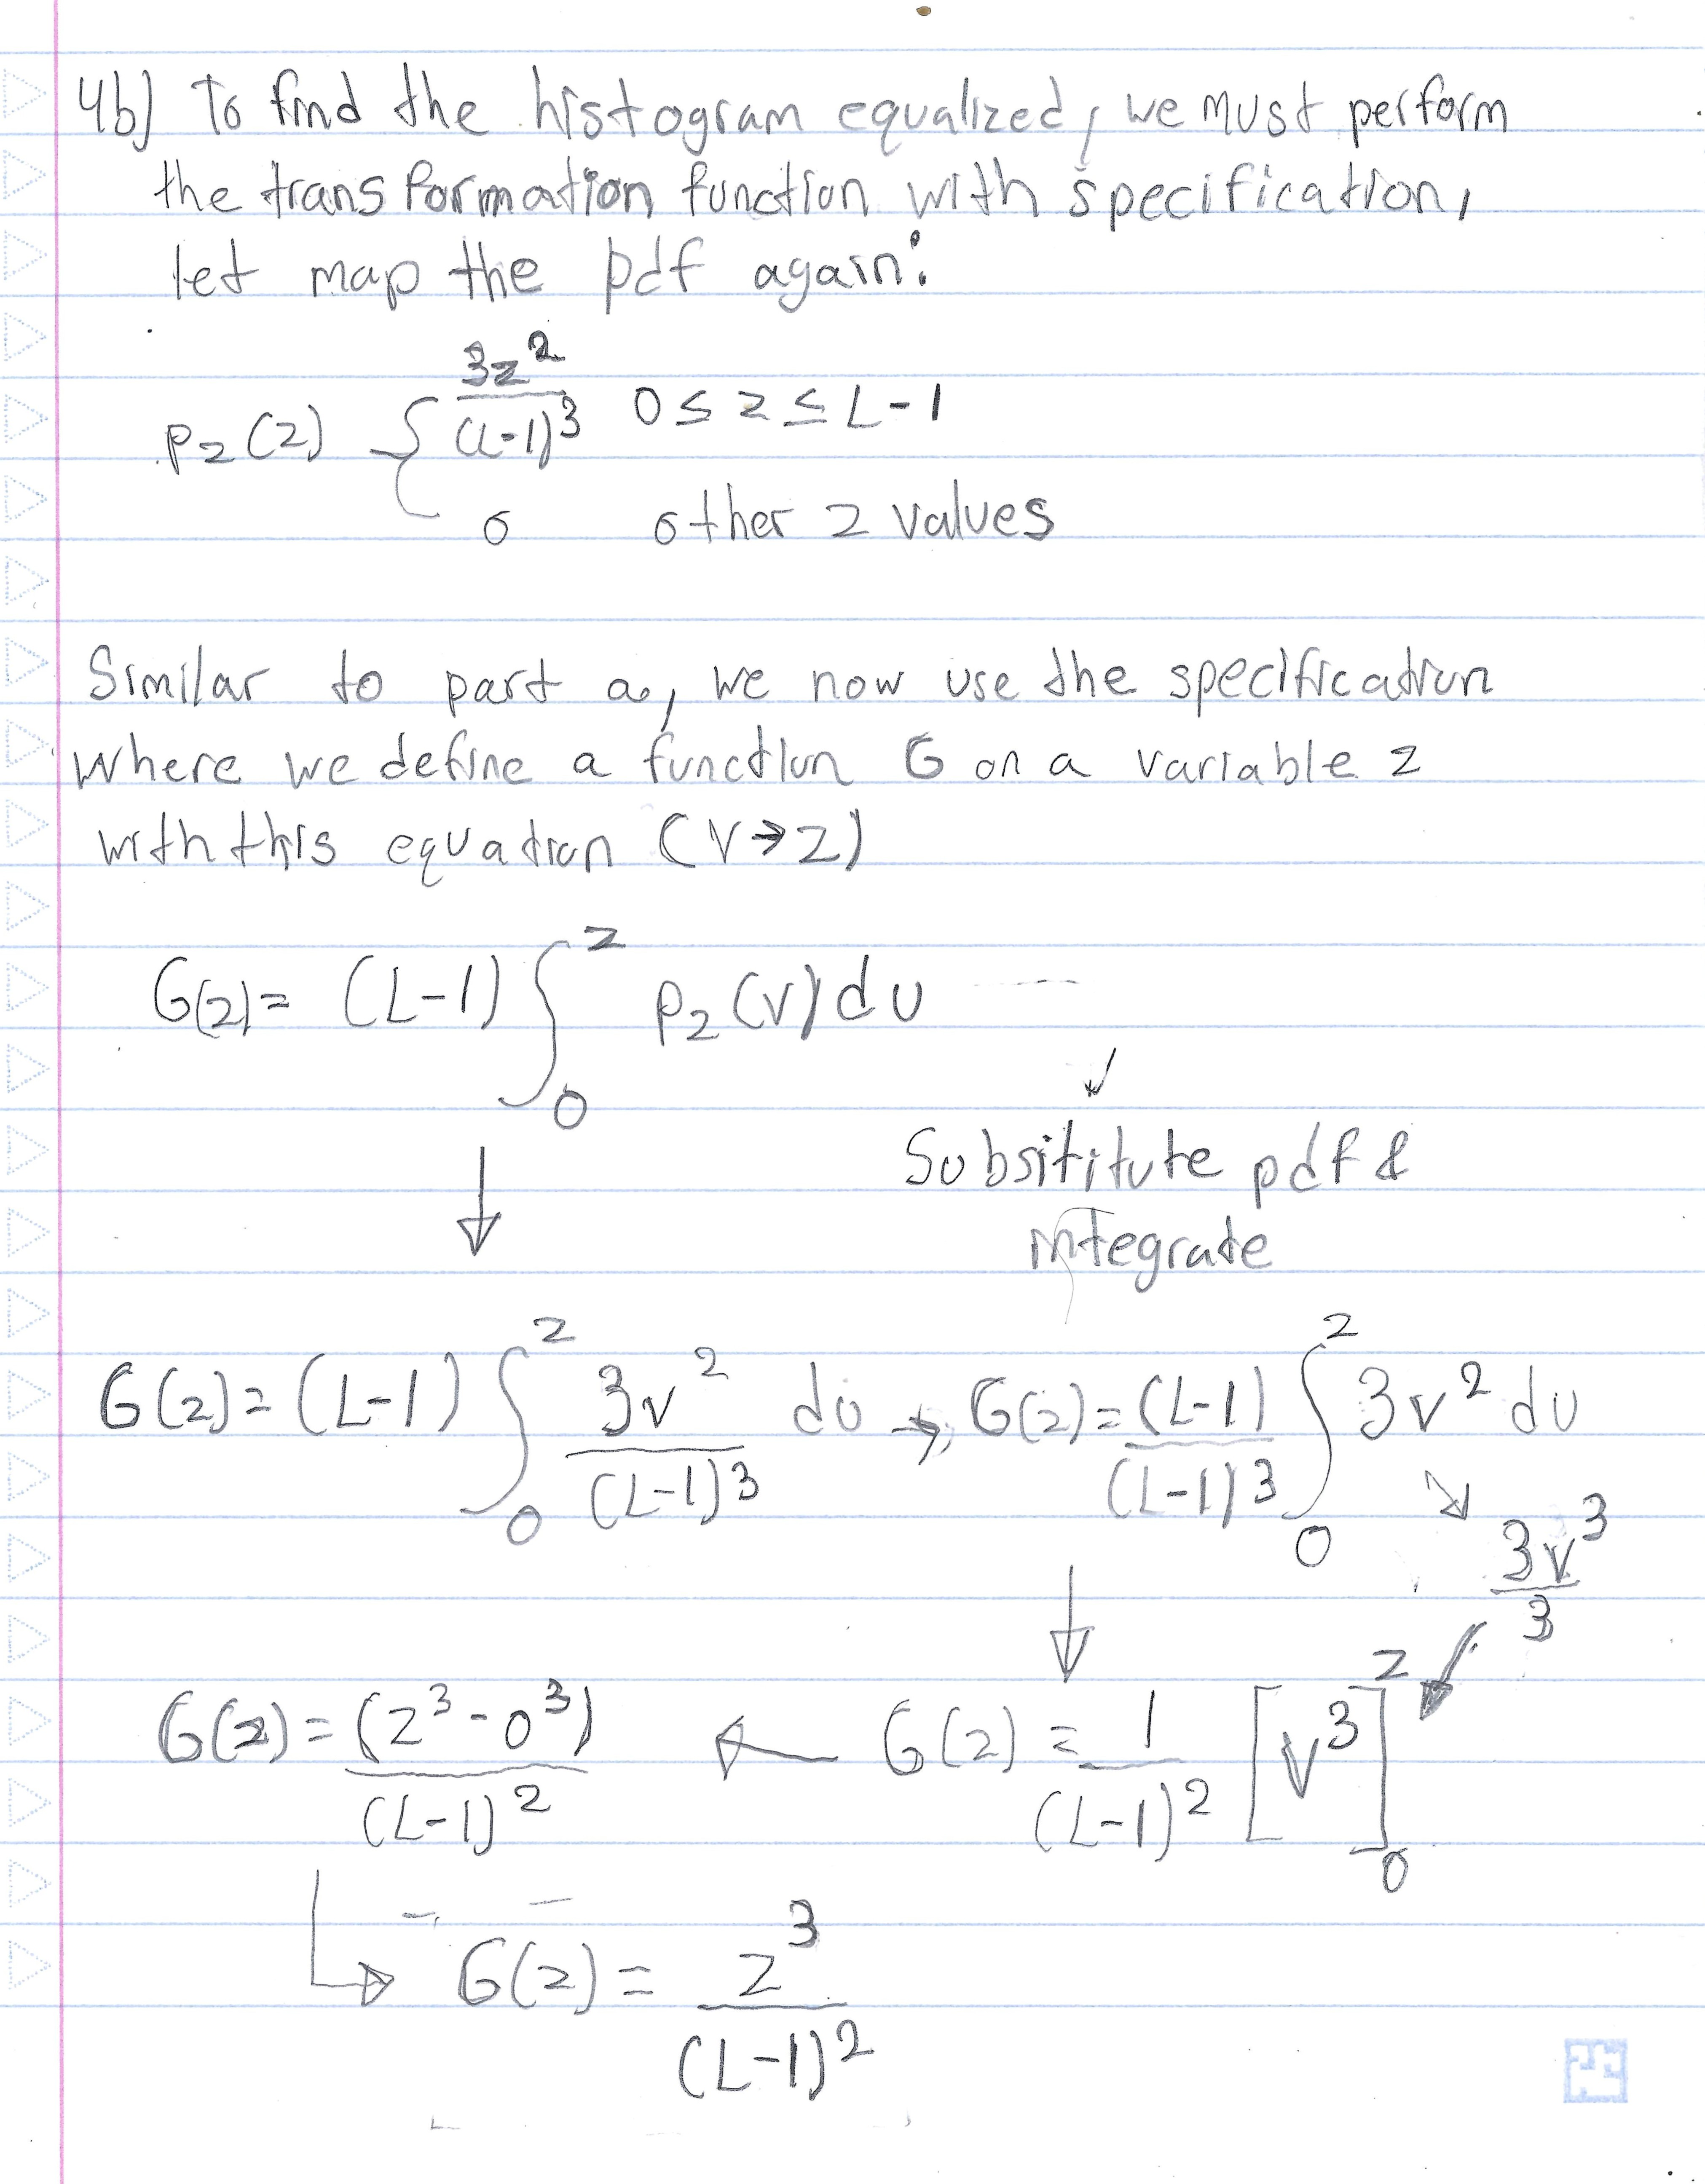 4b) To find the histogram equalized, we must perform
the transformation function with specification,
let map the pdf again:
p_z(z) { 3z^2/(L-1)^3 0 ≤ z ≤ L-1
0 other z values
Similar to part a, we now use the specification
where we define a function G on a variable z
with this equation (v→z)
G(z) = (L-1) ∫_0^z p_z(v) dv
↓ Subsititute pdf &
integrate
G(z) = (L-1) ∫_0^z 3v^2/(L-1)^3 dv → G(z) = (L-1)/(L-1)^3 ∫_0^z 3v^2 dv
↓ 3v^3/3
G(z) = (z^3 - 0^3)/(L-1)^2 ← G(z) = 1/(L-1)^2 [v^3]_0^z
↳ G(z) = z^3/(L-1)^2